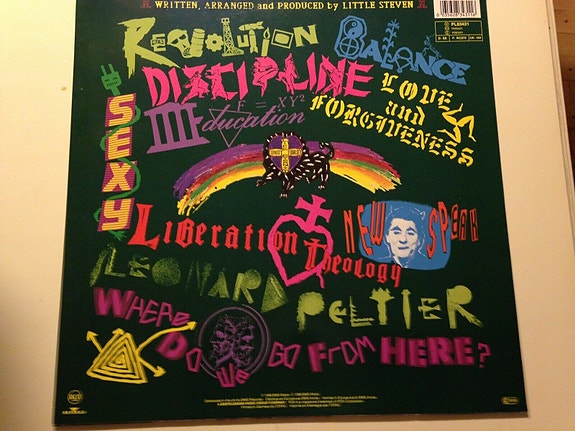 WRITTEN, ARRANGED and PRODUCED by LITTLE STEVEN
REVOLUTION
BALANCE
DISCIPLINE
SEXY
III
F = XY²
Education
LOVE
and
FORGIVENESS
LIBERATION
Theology
NEW SPEAK
LEONARD
PELTIER
WHERE
DO WE
GO FROM HERE?